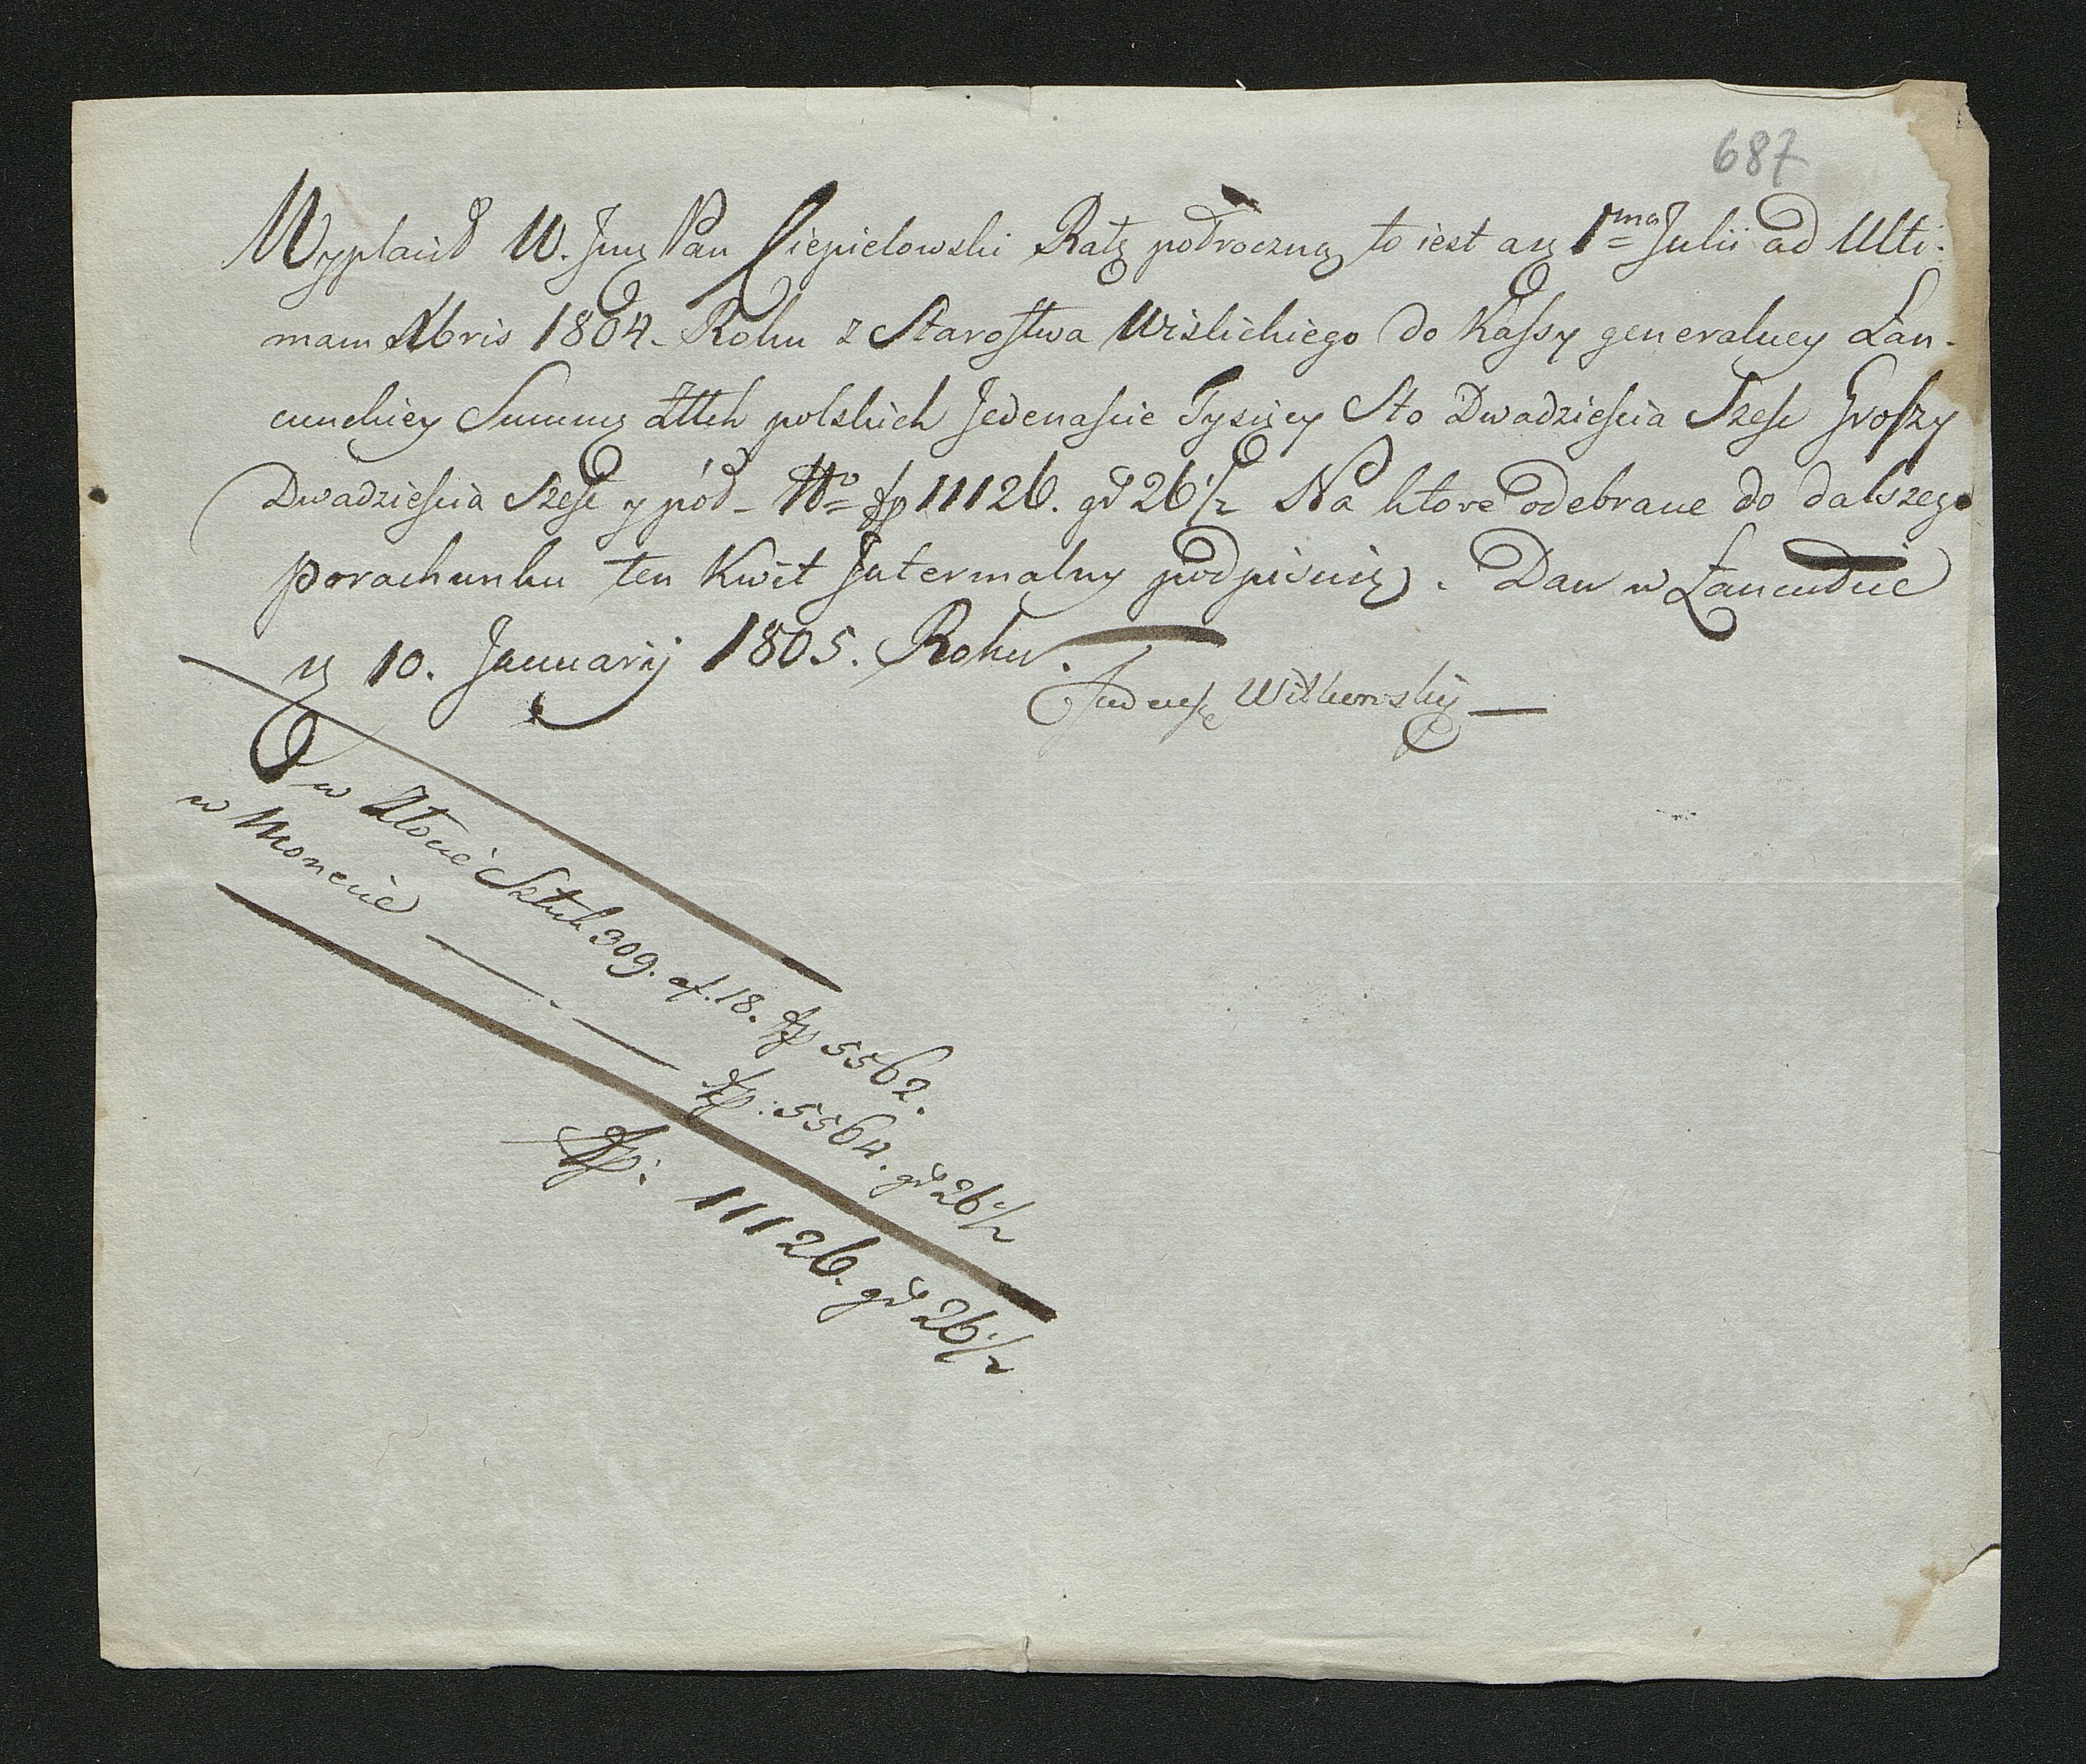 687
Wypłacił W. Jmć Pan Ciepielowski Ratę połroczną to iest a 1ma Julii ad Ulti-
mam Xbris 1804. Roku z Starostwa Wislickiego do Kassy generalney Łan-
cuckiey Summę Złłch polskich Jedenaście Tysięcy Sto Dwadzieścia Szesc Groszy
Dwadzieścia Szesc y poł - No fp 11126. gr 26 1/2 Na ktore odebrane do dalszego
porachunku ten Kwit Intermalny podpisuię. Dan w Łancucie
10. Januarij 1805. Roku.
Witkowskij
w Złocie Sztuk 309. af. 18. fp 5562.
w Monecie — — fp: 5564. gr 26 1/2
fp: 11126. gr 26 1/2